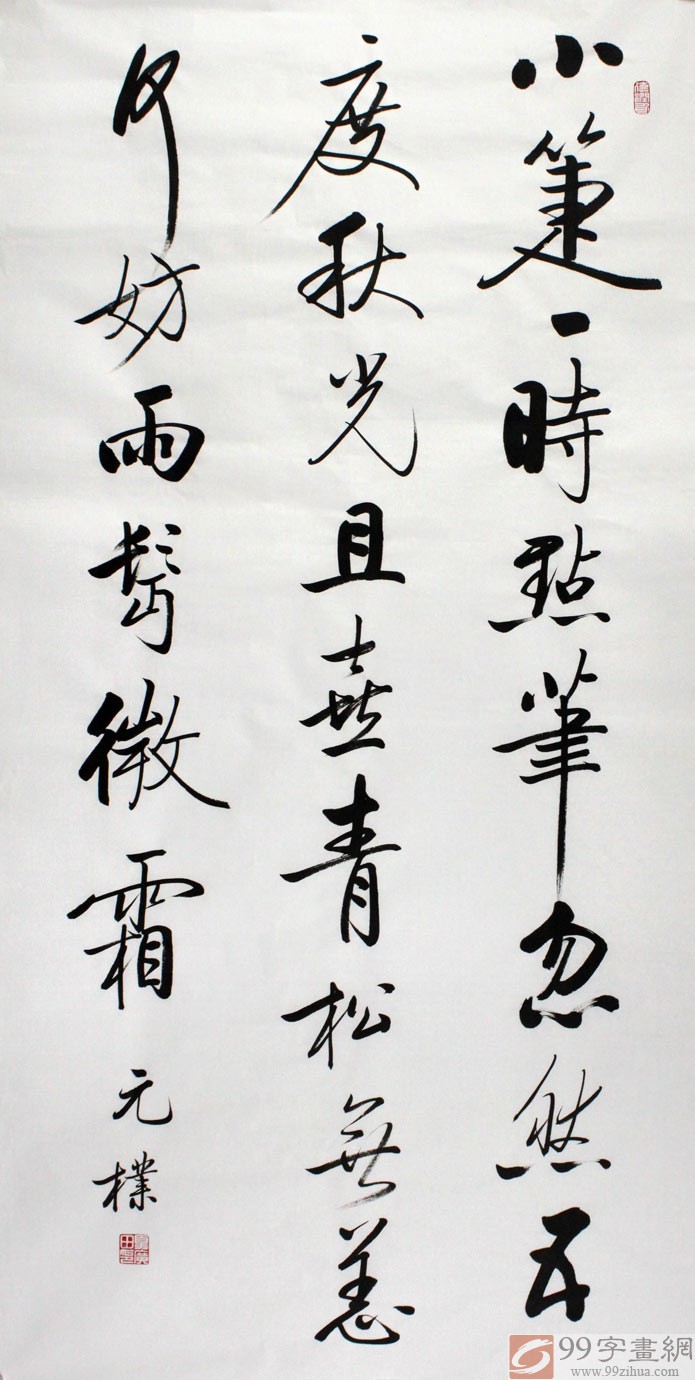 小箑一時點筆忽然五
度秋光且喜青松無恙
何妨兩鬢微霜
元樸
99字畫網
www.99zihua.com